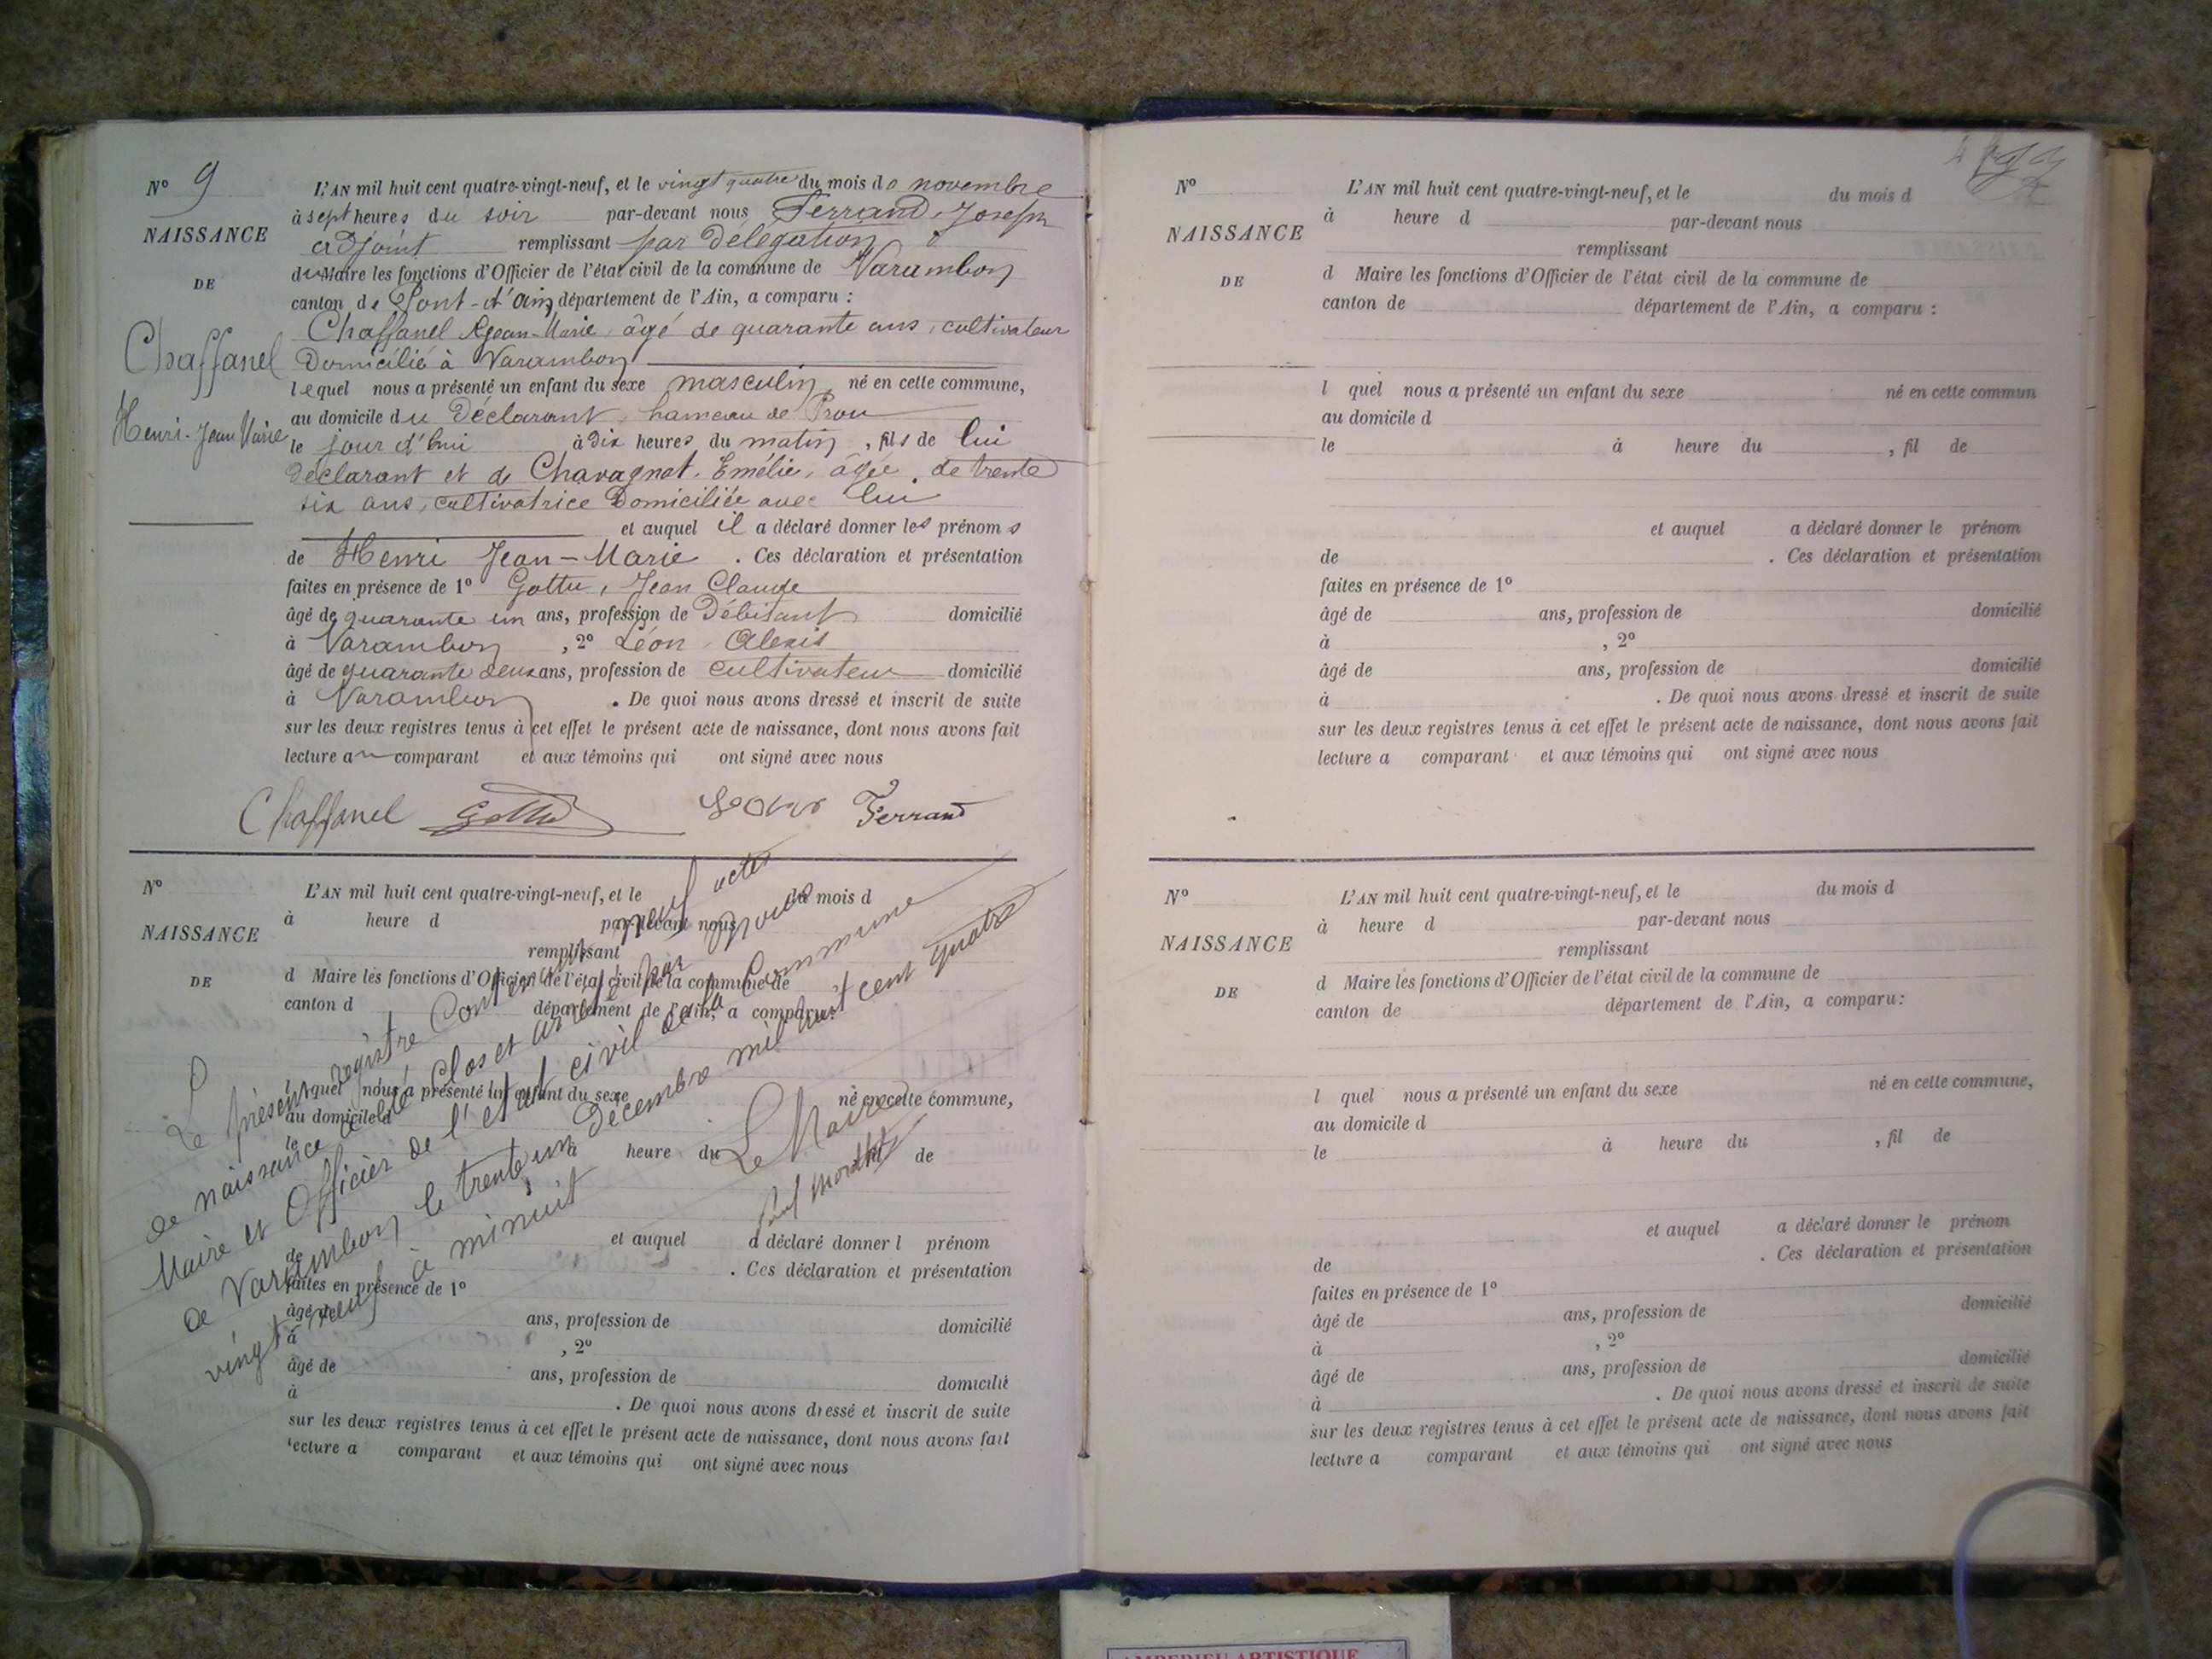 N° 9
NAISSANCE
DE
Chaffanel
Henri-Jean Marie
L'AN mil huit cent quatre-vingt-neuf, et le vingt quatre du mois de novembre
à sept heures du soir par-devant nous Ferrand, Joseph
adjoint remplissant par délégation
du Maire les fonctions d'Officier de l'état civil de la commune de Varambon
canton de Pont-d'ain département de l'Ain, a comparu :
Chaffanel Jean-Marie, âgé de quarante ans, cultivateur
Domicilié à Varambon
lequel nous a présenté un enfant du sexe masculin, né en cette commune,
au domicile du Déclarant, hameau de Prou
le jour d'hui à dix heures du matin, fils de lui
déclarant et de Chavagnat, Emélie, âgée de trente
six ans, cultivatrice Domiciliée avec lui
et auquel il a déclaré donner les prénoms
de Henri Jean-Marie . Ces déclaration et présentation
faites en présence de 1° Gottu, Jean Claude
âgé de quarante un ans, profession de Débitant domicilié
à Varambon , 2° Léon Alexis
âgé de quarante deux ans, profession de cultivateur domicilié
à Varambon . De quoi nous avons dressé et inscrit de suite
sur les deux registres tenus à cet effet le présent acte de naissance, dont nous avons fait
lecture au comparant et aux témoins qui ont signé avec nous
Chaffanel Gottu Léon Ferrand
N°
NAISSANCE
DE
L'AN mil huit cent quatre-vingt-neuf, et le du mois d
à heure d par-devant nous
remplissant
d Maire les fonctions d'Officier de l'état civil de la commune de
canton d département de l'Ain, a comparu:
l quel nous a présenté un enfant du sexe né en cette commune,
au domicile d
le à heure du fil de
et auquel a déclaré donner l prénom
de . Ces déclaration et présentation
faites en présence de 1°
âgé de ans, profession de domicilié
à , 2°
âgé de ans, profession de domicilié
à . De quoi nous avons dressé et inscrit de suite
sur les deux registres tenus à cet effet le présent acte de naissance, dont nous avons fait
lecture a comparant et aux témoins qui ont signé avec nous
Le présent registre contenant neuf actes
de naissance a été clos et arrêté par Nous
Maire et Officier de l'état civil de la Commune
de Varambon le trente un décembre mil huit cent quatre
vingt neuf à minuit
Le Maire
N°
NAISSANCE
DE
L'AN mil huit cent quatre-vingt-neuf, et le du mois d
à heure d par-devant nous
remplissant
d Maire les fonctions d'Officier de l'état civil de la commune de
canton de département de l'Ain, a comparu :
l quel nous a présenté un enfant du sexe né en cette commun
au domicile d
le à heure du , fil de
et auquel a déclaré donner le prénom
de . Ces déclaration et présentation
faites en présence de 1°
âgé de ans, profession de domicilié
à , 2°
âgé de ans, profession de domicilié
à . De quoi nous avons dressé et inscrit de suite
sur les deux registres tenus à cet effet le présent acte de naissance, dont nous avons fait
lecture a comparant et aux témoins qui ont signé avec nous
N°
NAISSANCE
DE
L'AN mil huit cent quatre-vingt-neuf, et le du mois d
à heure d par-devant nous
remplissant
d Maire les fonctions d'Officier de l'état civil de la commune de
canton de département de l'Ain, a comparu:
l quel nous a présenté un enfant du sexe né en cette commune,
au domicile d
le à heure du , fil de
et auquel a déclaré donner le prénom
de . Ces déclaration et présentation
faites en présence de 1°
âgé de ans, profession de domicilié
à , 2°
âgé de ans, profession de domicilié
à . De quoi nous avons dressé et inscrit de suite
sur les deux registres tenus à cet effet le présent acte de naissance, dont nous avons fait
lecture a comparant et aux témoins qui ont signé avec nous
AMBERIEU ARTISTIQUE